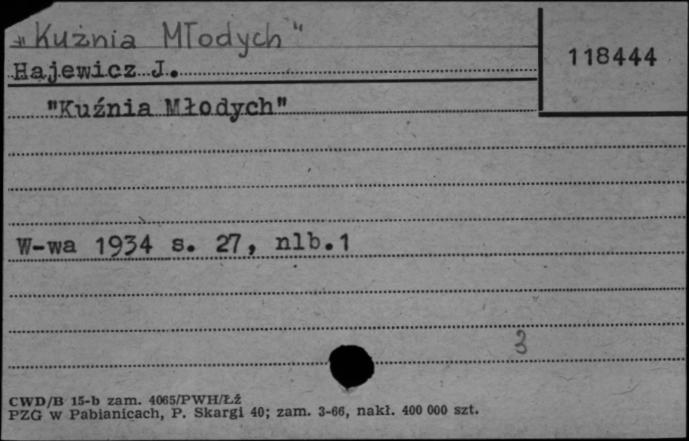 „Kuźnia Młodych"
118444
Hajewicz J.
"Kuźnia Młodych"
W-wa 1934 s. 27, nlb.1
3
CWD/B 15-b zam. 4065/PWH/Łź
PZG w Pabianicach, P. Skargi 40; zam. 3-66, nakł. 400 000 szt.